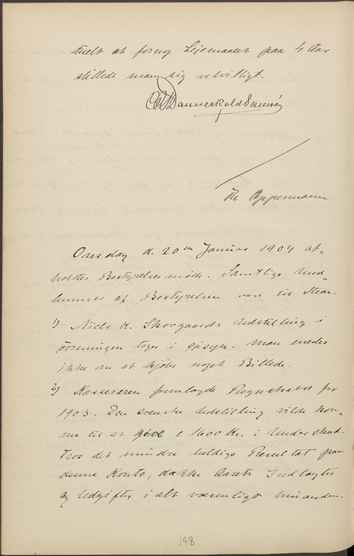 at forny Lejemaalet paa 4 Aar
stillede man sig velvilligt.
Danneskjold Samsøe
Th. Oppermann
Onsdag d. 20de Januar 1904 af-
holdtes Bestyrelsesmøde. Samtlige Med-
lemmer af Bestyrelsen var til Stede.
1) Niels K. Skovgaards Udstilling i
Foreningen toges i Øjesyn. Man enedes
ikke om at kjøbe noget Billede.
2) Kassereren fremlagde Regnskabet for
1903. Den svenske Udstilling vilde kom-
me til at give c 1600 Kr. i Underskud.
Trods det mindre heldige Resultat paa
denne Konto, dække Aarets Indtægter
og Udgifter i alt væsentligt hinanden.
198